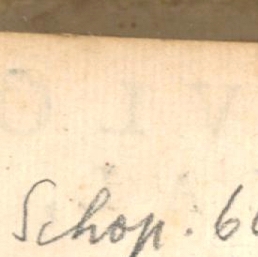 Schop. 66